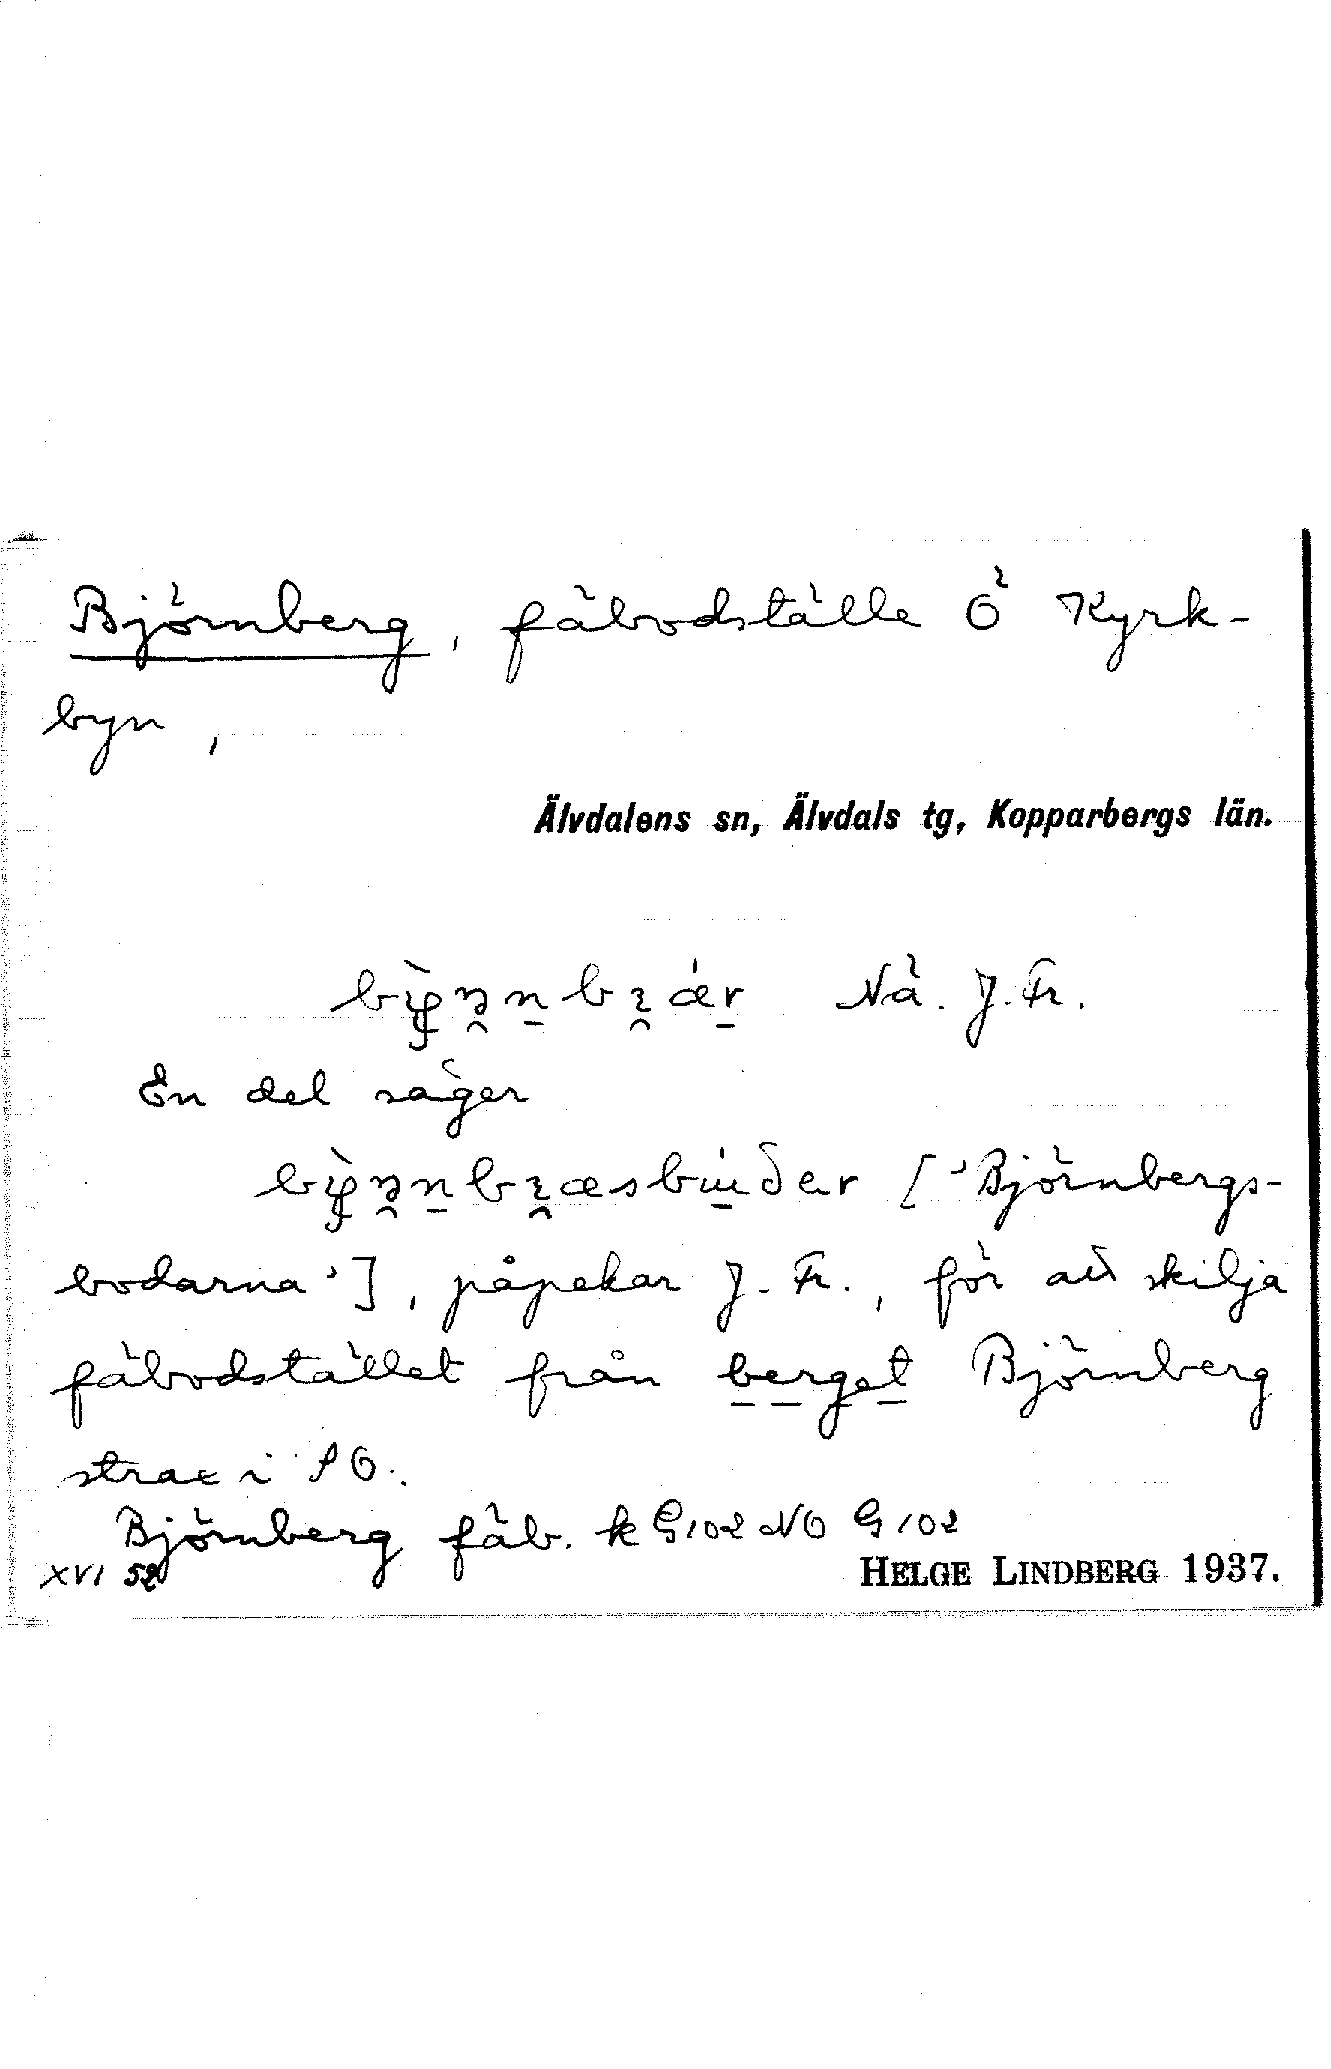 Björnberg, fäbodställe Ö Kyrk-
byn,
Älvdalens sn, Älvdals tg, Kopparbergs län.
Nä. J. Fr.
En del säger
['Björnbergs-
bodarna'], påpekar J. Fr., för att skilja
fäbodstället från berget Björnberg
strax i SO.
Björnberg fäb. k G102 NO G102
XVI 52
HELGE LINDBERG 1937.